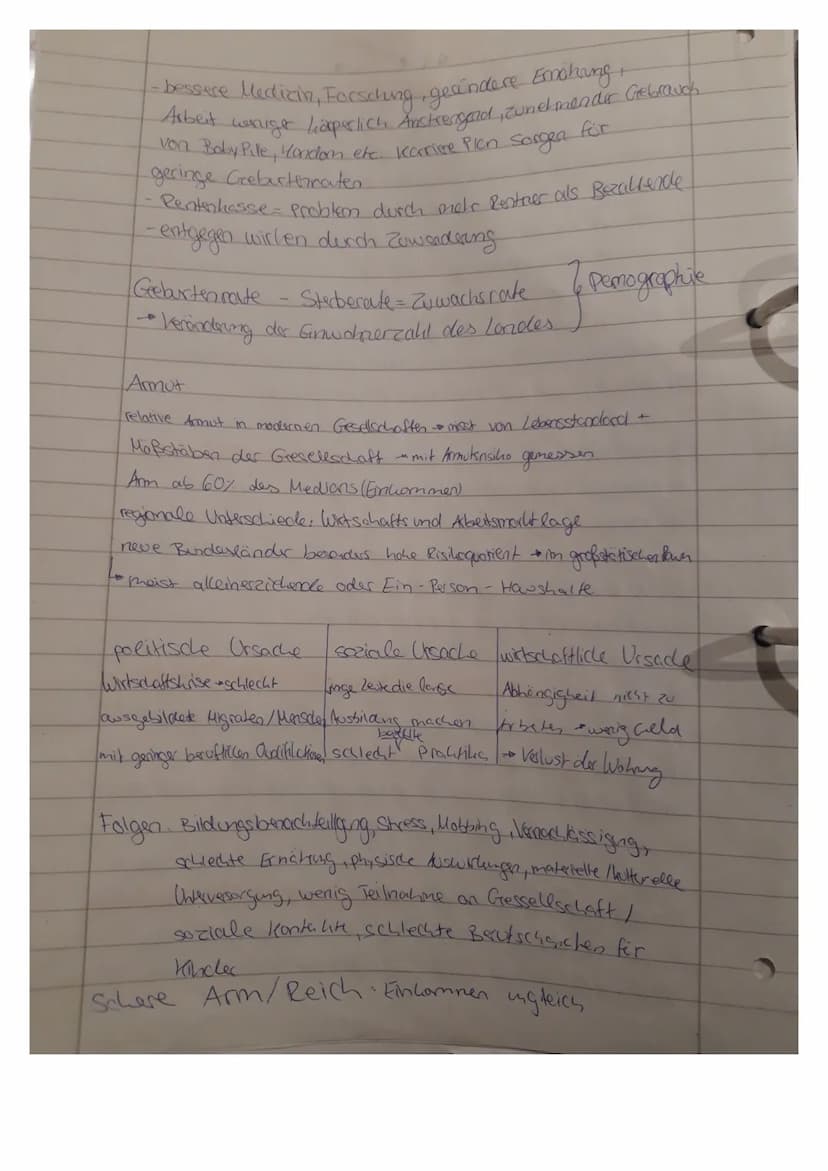 - bessere Medizin, Forschung, geändere Ernährung,
Arbeit weniger körperlich Anstrengend, zunehmender Gebrauch
von Baby Pille, Kondom etc. Karriere Plan sorgen für
geringe Geburtenraten
- Rentenkasse = Problem durch mehr Rentner als Bezahlende
- entgegen wirken durch Zuwanderung
Geburtenrate - Sterberate = Zuwachsrate } Demographie
→ Veränderung der Einwohnerzahl des Landes
Armut
relative Armut in modernen Gesellschaften → von Lebensstandard +
Maßstäben der Gesellschaft → mit Armutsrisiko gemessen
Arm ab 60% des Medians (Einkommen)
regionale Unterschiede: Wirtschafts und Arbeitsmarktlage
neue Bundesländer besonders hohe Risikoquotient → im großstätischen Raum
↳ meist alleinerziehende oder Ein-Person-Haushalte
politische Ursache | soziale Ursache | wirtschaftliche Ursache
Wirtschaftskrise → schlecht | junge Leute die lange | Abhängigkeit nicht zu
ausgebildete Migraten/Menschen | Ausbildung machen | Arbeiten → wenig Geld
mit geringer beruflichen Qualifikation | schlecht bezahlte Praktika | → Verlust der Wohnung
Folgen: Bildungsbenachteiligung, Stress, Mobbing, Vernachlässigung,
schlechte Ernährung, physische Auswirkungen, materielle/kulturelle
Unterversorgung, wenig Teilnahme an Gessellschaft /
soziale Kontakte, schlechte für
Kinder
Schere Arm/Reich: Einkommen ungleich